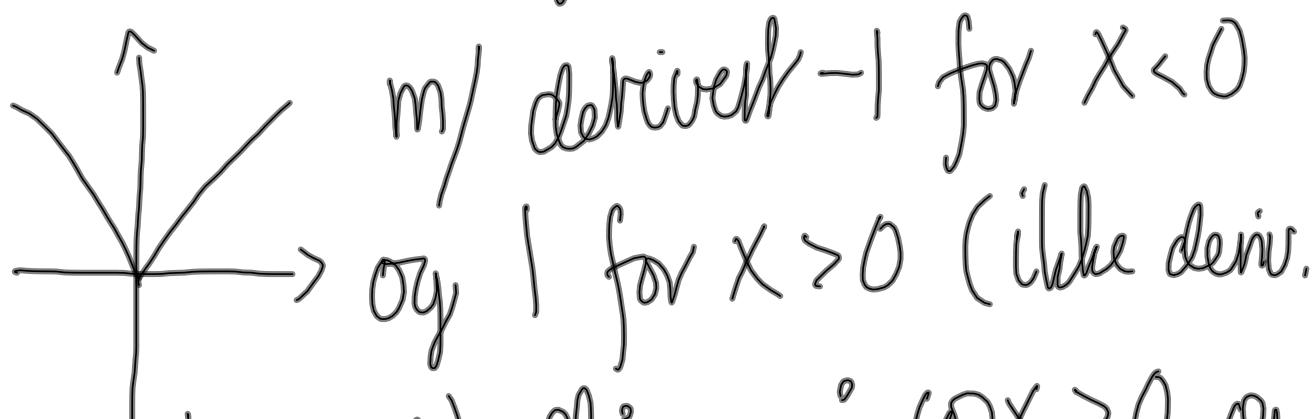 m/ derivert -1 for x < 0
og 1 for x > 0 (ikke deriv.